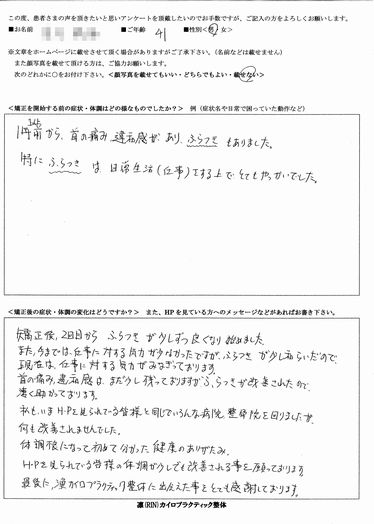 この度、患者さまの声を頂きたいと思いアンケートを頂戴したいのでお手数ですが、ご記入の方をよろしくお願いします。
■お名前 ■ご年齢 41 ■性別<男・女>
※文章をホームページに載せさせて頂く場合がありますがご了承下さい。(名前などは載せません)
また顔写真を載せて頂ける方は、ご協力お願いします。
次のどれかに○をお付け下さい。<顔写真を載せてもいい・どちらでもよい・載せない>
<矯正を開始する前の症状・体調はどの様なものでしたか?> 例(症状名や日常で困っていた動作など)
前から、首の痛み 違和感があり、ふらつきもありました。
特にふらつきは、日常生活(仕事)をする上でとてもやっかいでした。
<矯正後の症状・体調の変化はどうですか?> また、HPを見ている方へのメッセージなどがあればお書き下さい。
矯正後、2日目から ふらつきが少しずつ良くなり始めました。
また、今までは、仕事に対する気力が少なかったですが、ふらつきが少しないだので、
現在は、仕事に対する気力がみなぎっております。
首の痛み、違和感は、まだ少し残っておりますがふらつきが改善されたので、
凄く助かっております。
私も、いまH・Pを見られている皆様と同じでいろんな病院、整体院を回りましたが、
何も改善されませんでした。
体調悪になって初めて分かった健康のありがたみ。
H・Pを見られている皆様の体調が少しでも改善される事を願っております。
最後に、凛カイロプラクティック整体に出会えた事をとても感謝しております。
凛(RIN)カイロプラクティック整体